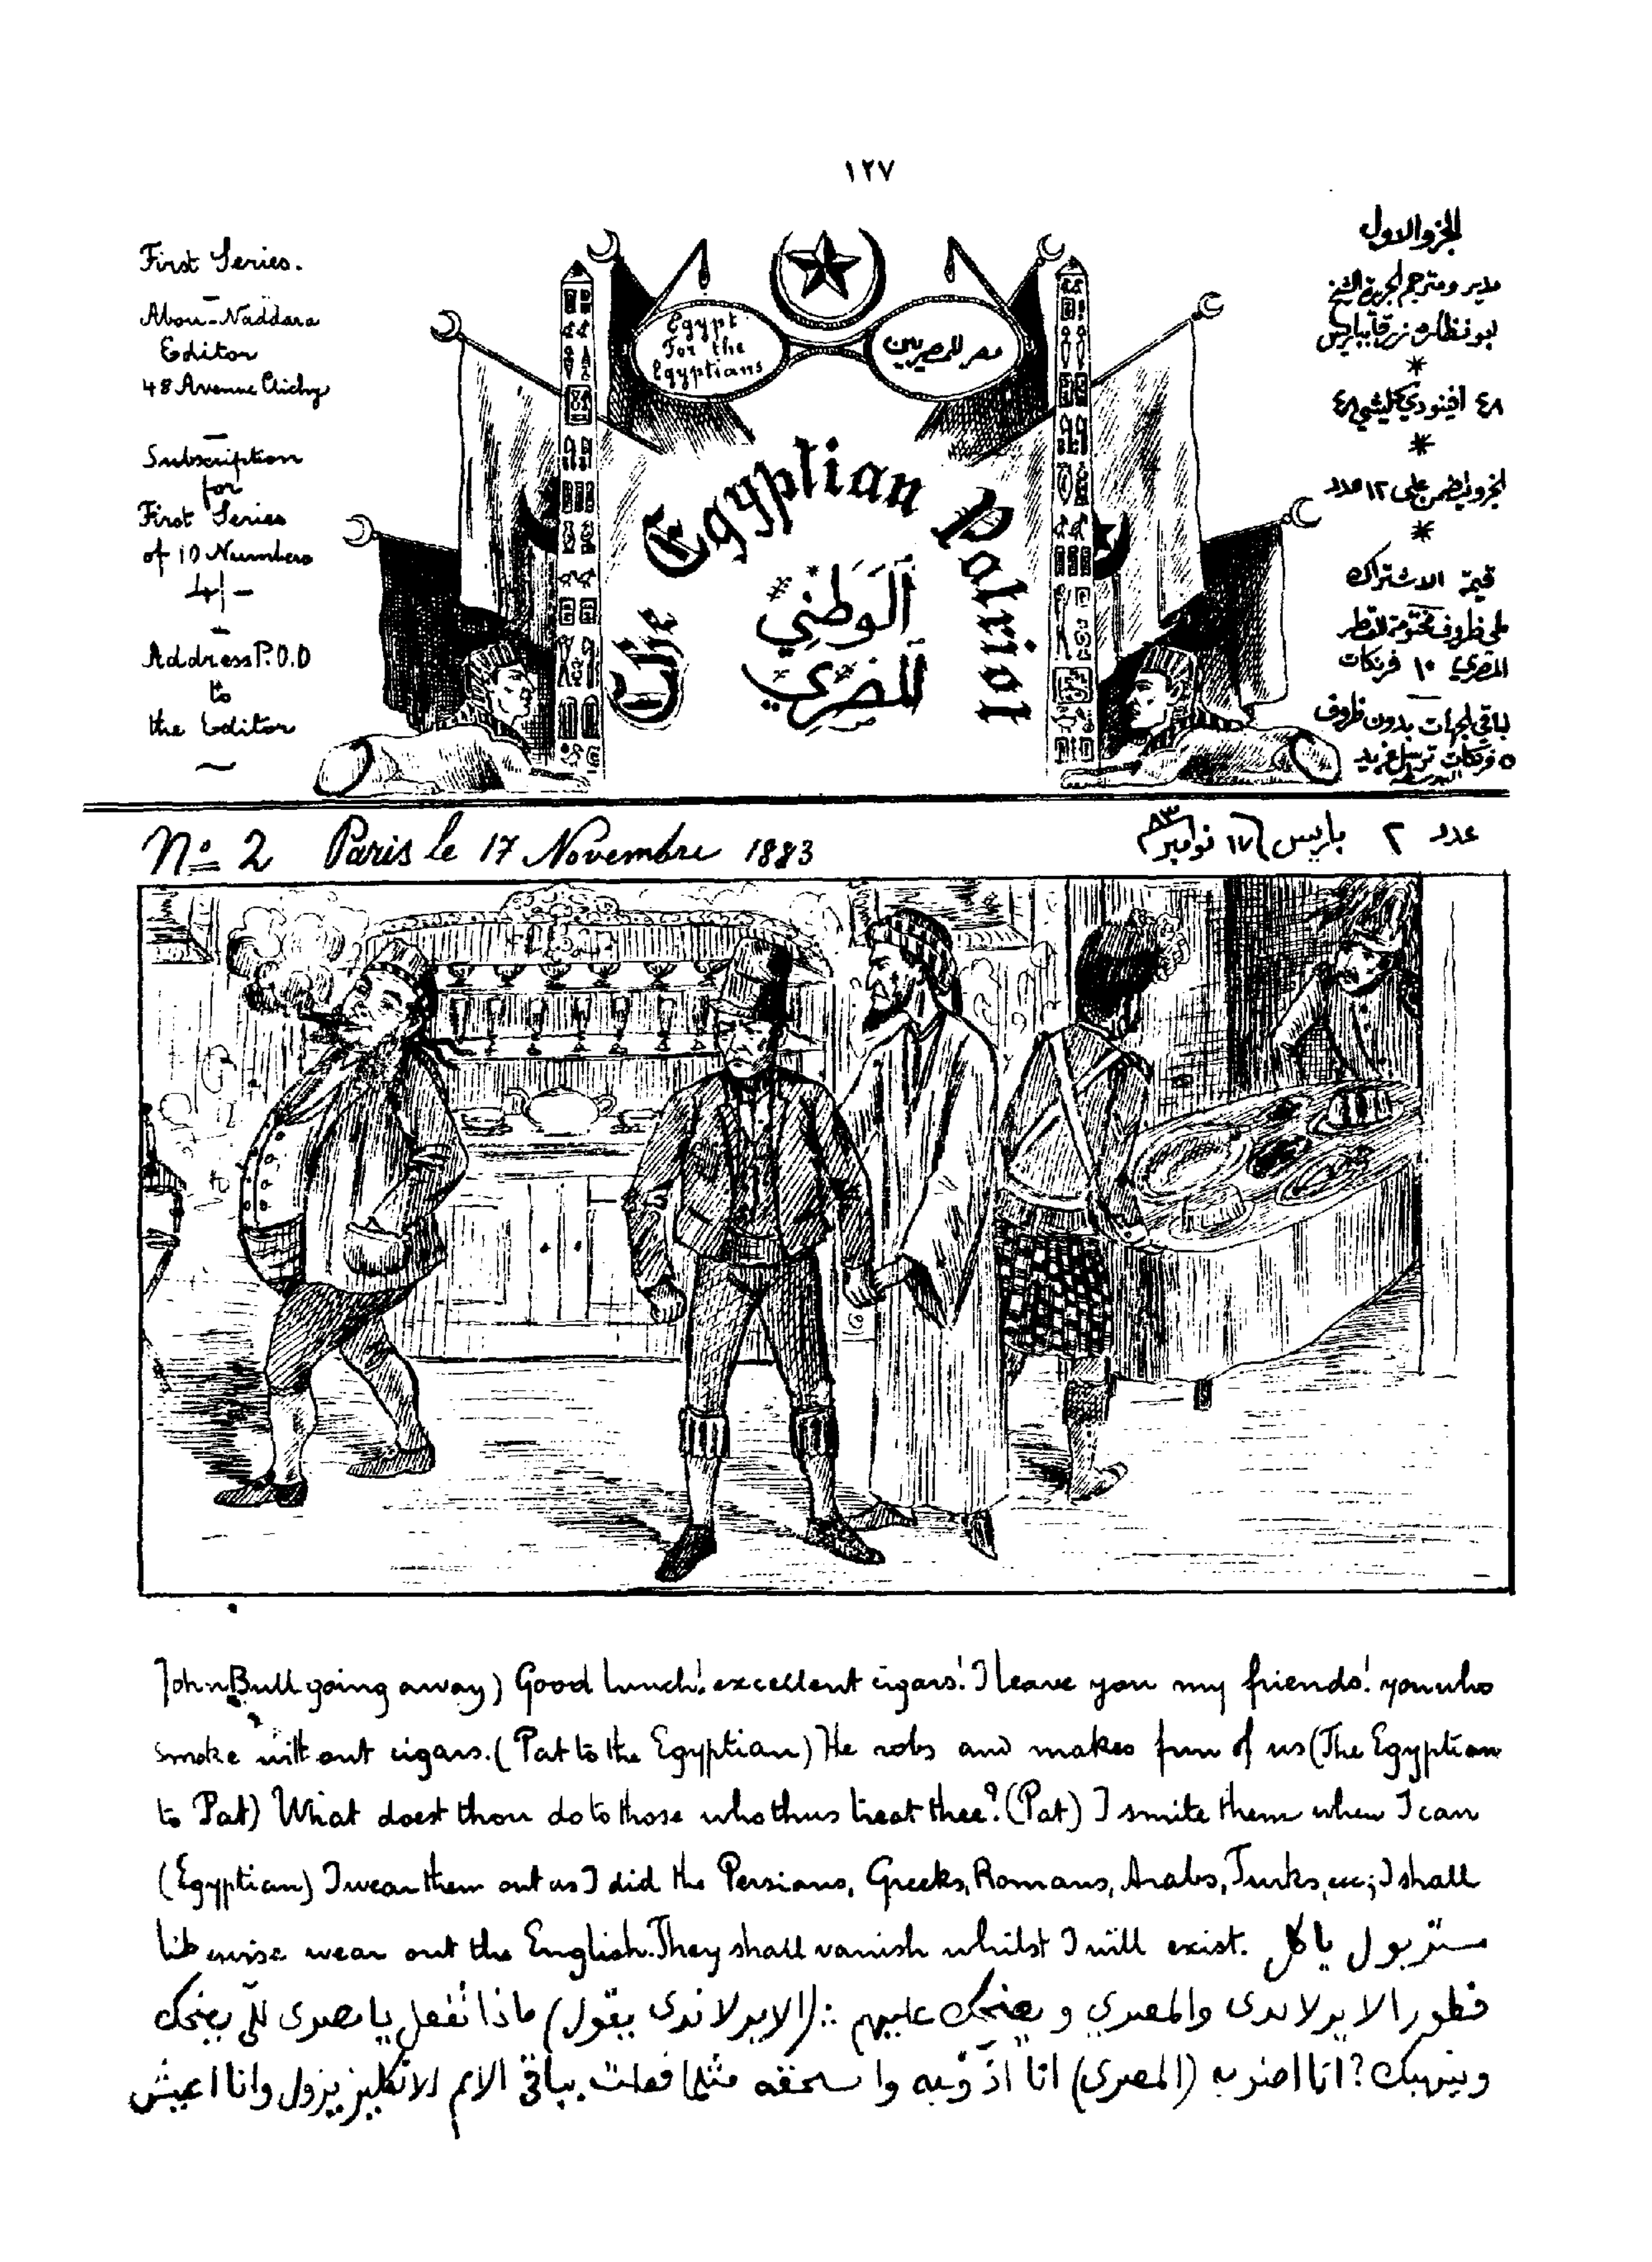 ١٢٧
First Series.
Abou-Naddara
Editor
48 Avenue Clichy
Subscription
for
First Series
of 10 Numbers
4/-
Address P.O.O
to
the Editor
Egypt
For the
Egyptians
مصر للمصريين
The Egyptian Patriot
الوَطَنِي
المِصْرِي
الجزو الاول
مدير ومترجم الجريدة الشيخ
ابو نظاره زرقا بباريس
*
٤٨ افينودي كليشي ٤٨
*
*
قيمة الاشتراك
المصري ١٠ فرنكات
لباقي الجهات بدون ظروف
Nº 2 Paris le 17 Novembre 1883
عدد ٢ باريس ١٧ نوامبر ٨٣
John Bull going away) Good lunch! excellent cigars! I leave you my friends! you who
smoke without cigars. (Pat to the Egyptian) He robs and makes fun of us (The Egyptian
to Pat) What doest thou do to those who thus treat thee? (Pat) I smite them when I can
(Egyptian) I wear them out as I did the Persians, Greeks, Romans, Arabs, Turks, etc; I shall
likewise wear out the English. They shall vanish whilst I will exist. مستر بول ياكل
فطور الايرلاندى والمصري و يضحك عليهم :: (الايرلاندى يقول) ماذا تفعل يا مصرى للى يضحك
وينهبك؟ انا اضربه (المصرى) انا اذوّبه واسحقه مثلما فعلت بباقي الامم الانكليز يزول وانا اعيش